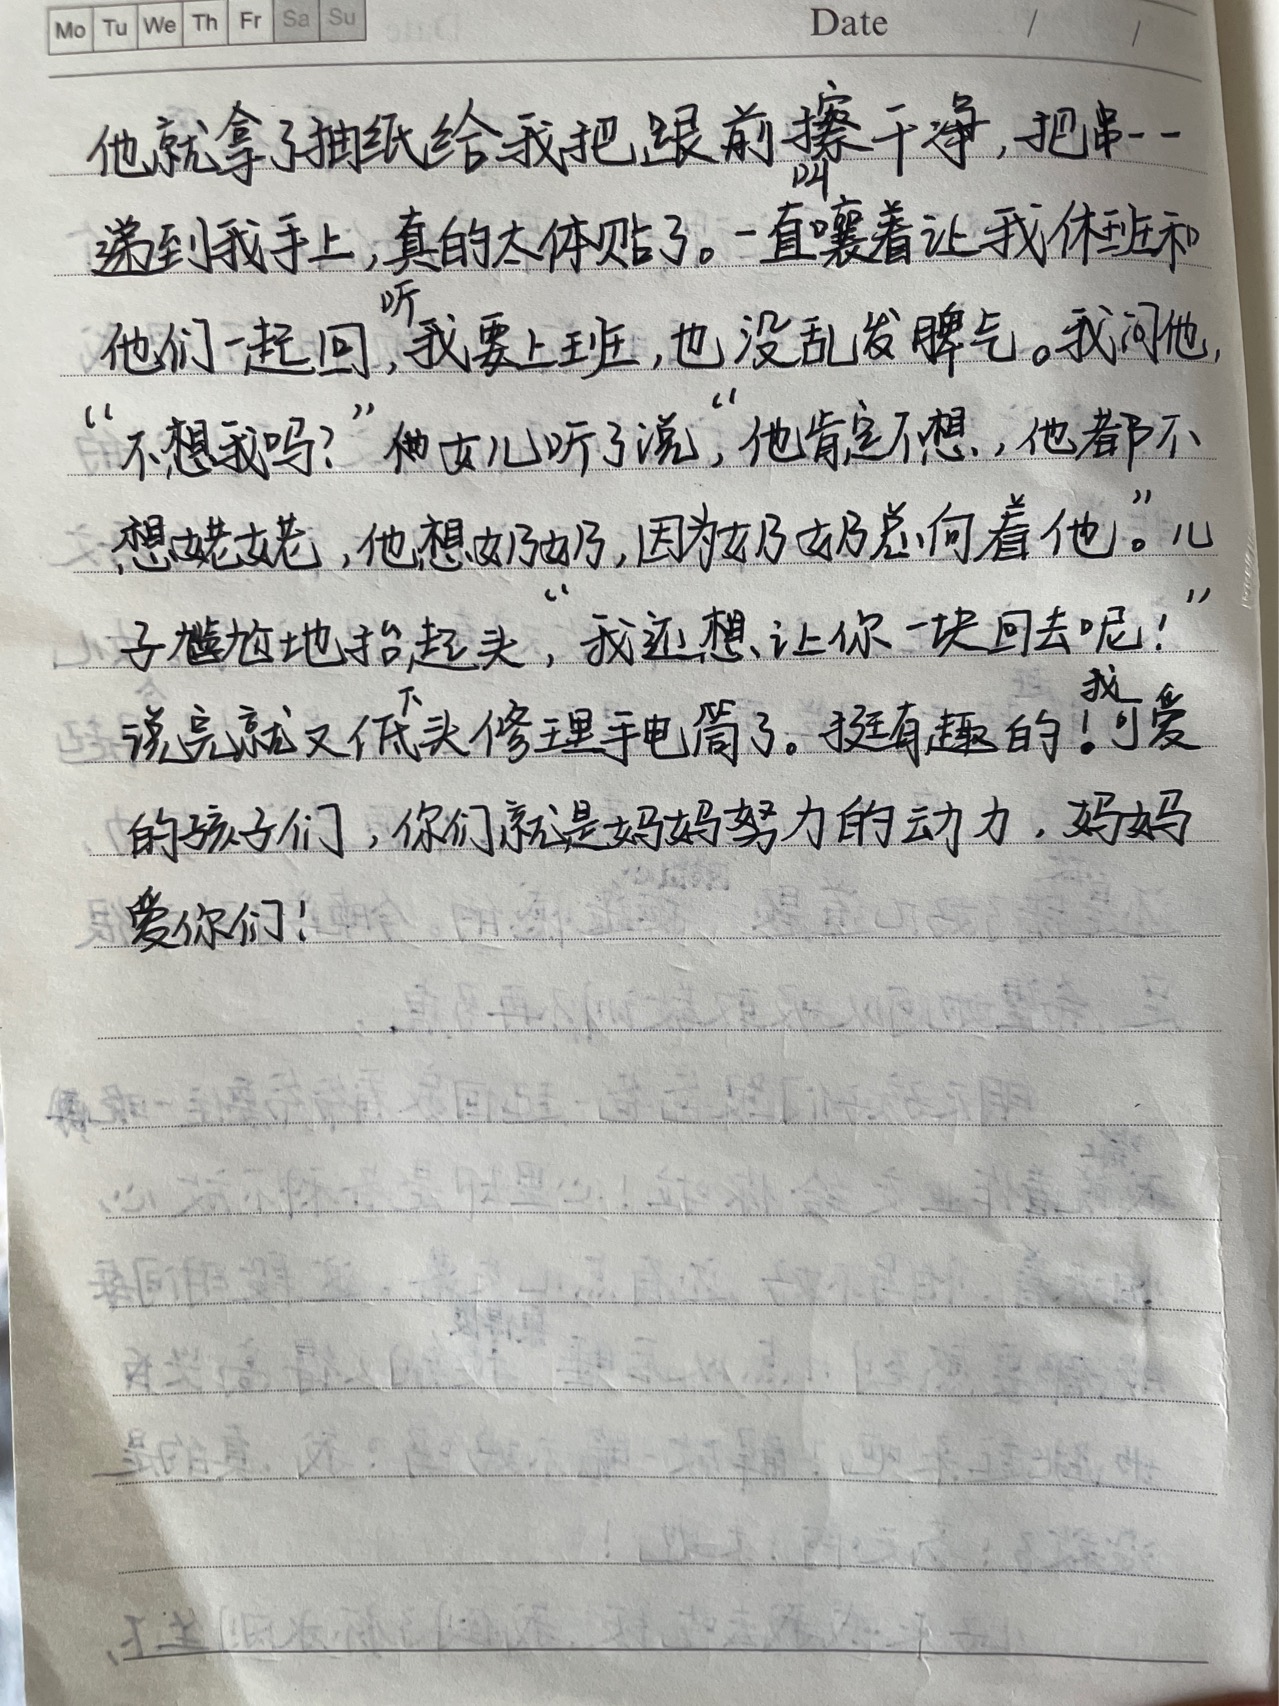 Mo Tu We Th Fr Sa Su Date / /
他就拿了抽纸给我把跟前擦干净，把串一一
递到我手上，真的太体贴了。一直叫嚷着让我休班和
他们一起回，听我要上班，也没乱发脾气。我问他，
“不想我吗？”他女儿听了说，“他肯定不想，他都不
想姥姥，他想奶奶，因为奶奶总向着他。”儿
子尴尬地抬起头，“我还想让你一块回去呢！”
说完就又低下头修理手电筒了。挺有趣的！我可爱
的孩子们，你们就是妈妈努力的动力，妈妈
爱你们！